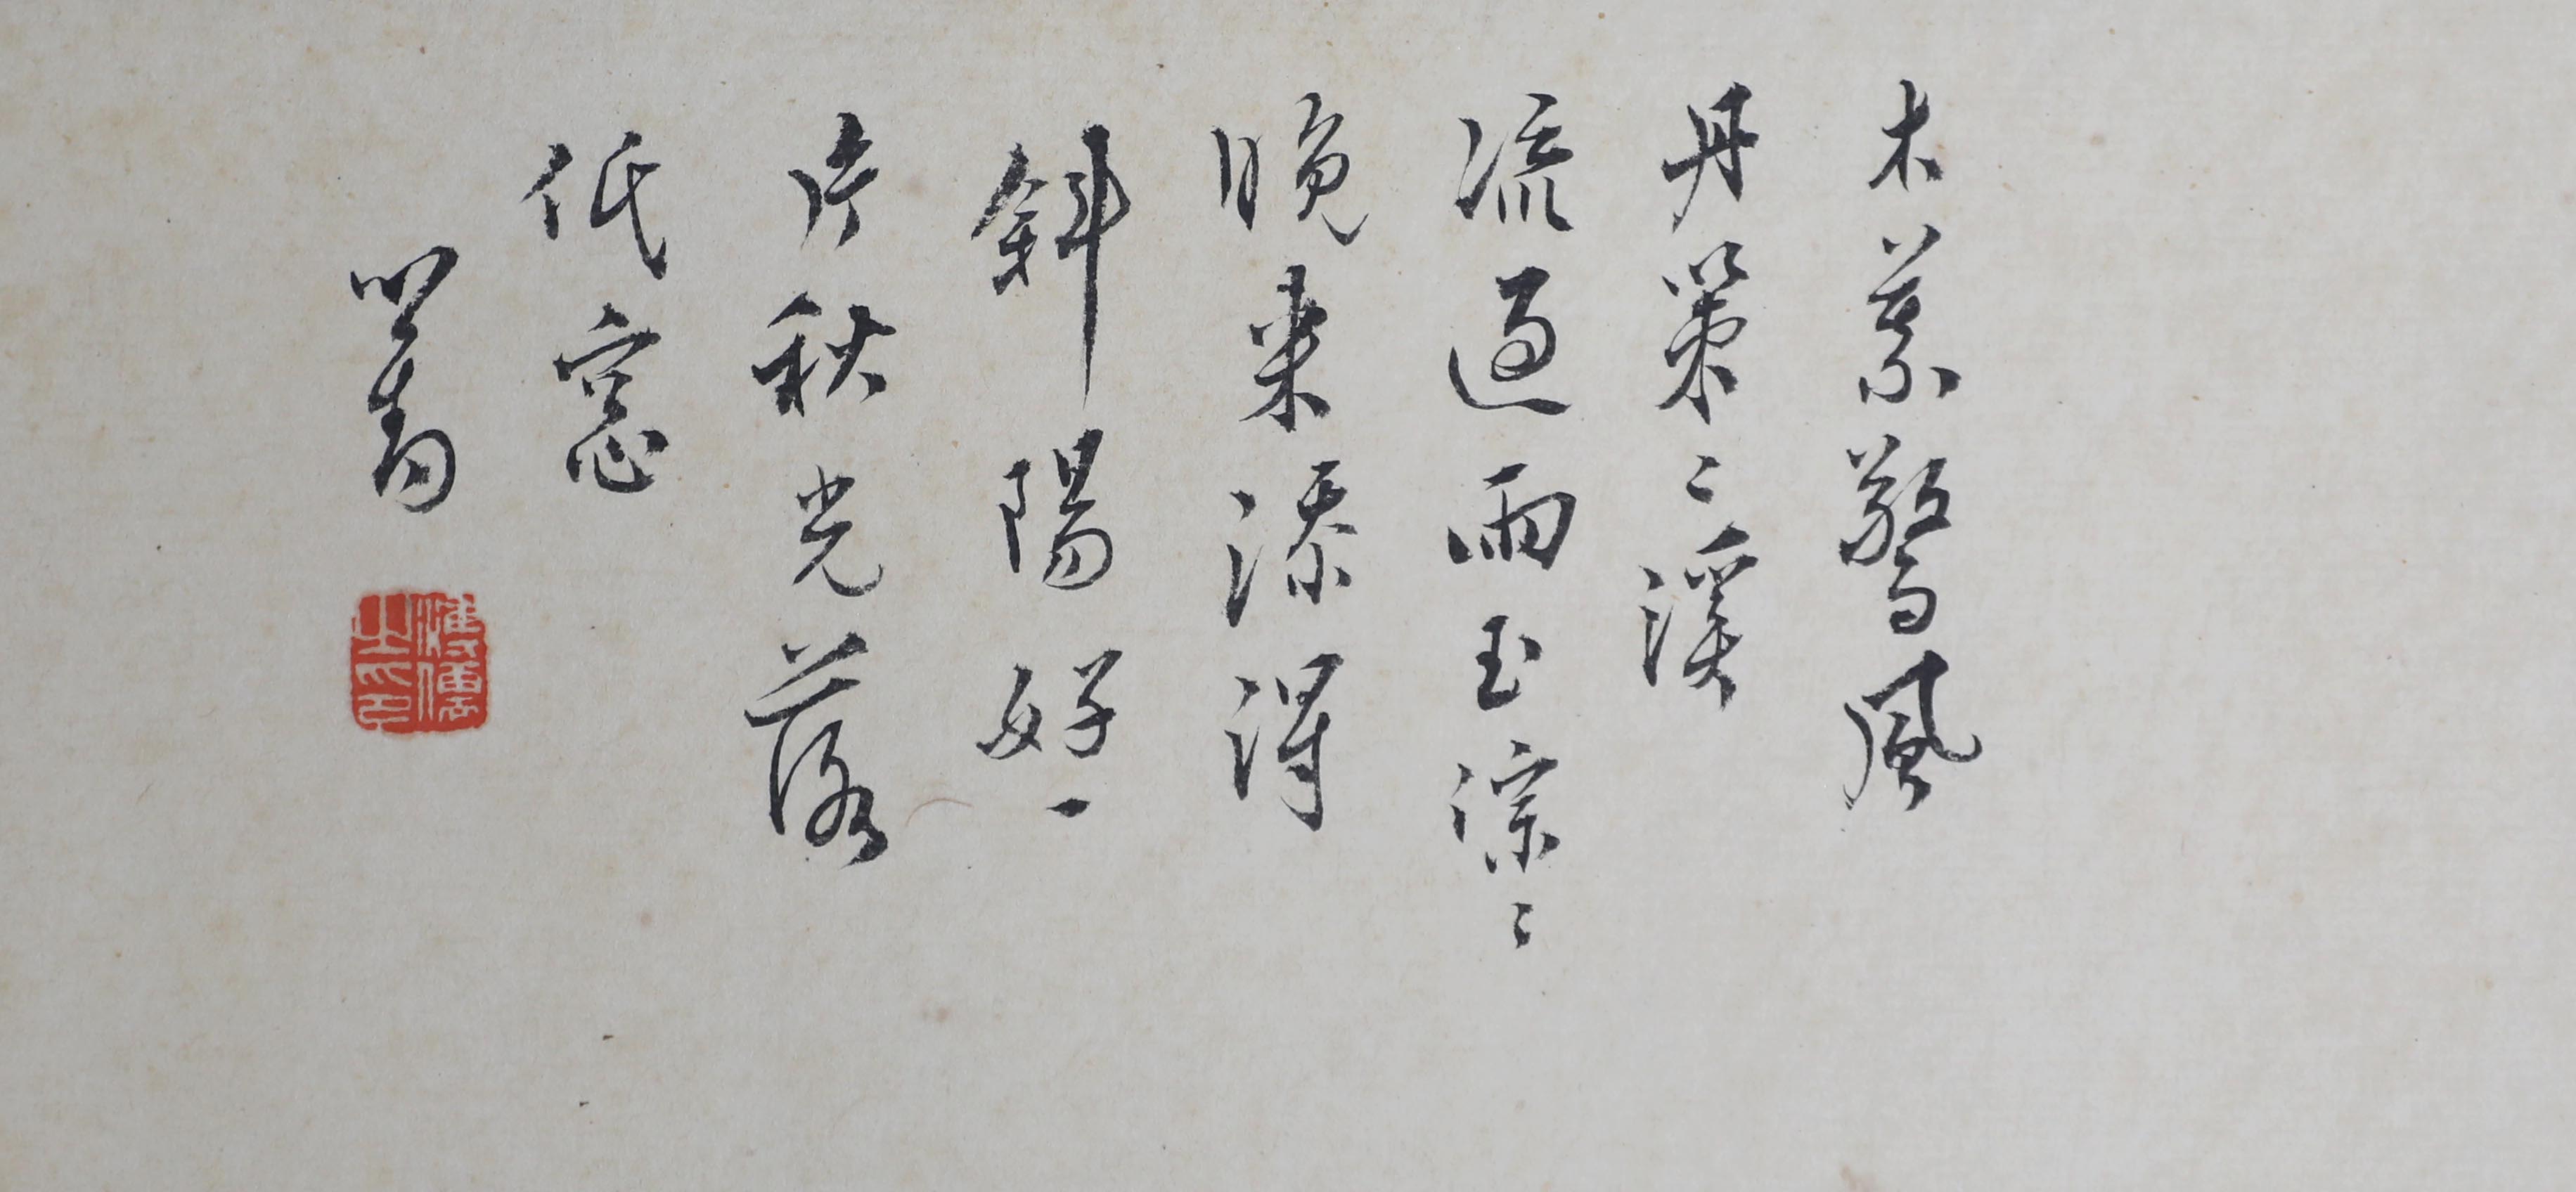 木葉驚風
丹策〻溪
流過雨玉淙〻
晚来添得
斜陽好一
片秋光落
低窓
心畬
溥儒
之印